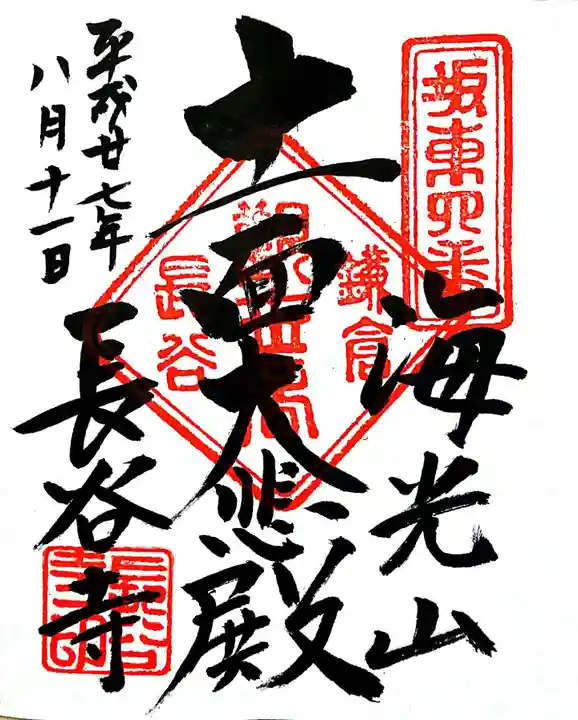 坂東四番
海光山
十一面大悲殿
鎌倉
観世音
長谷
平成廿七年
八月十一日
長谷寺